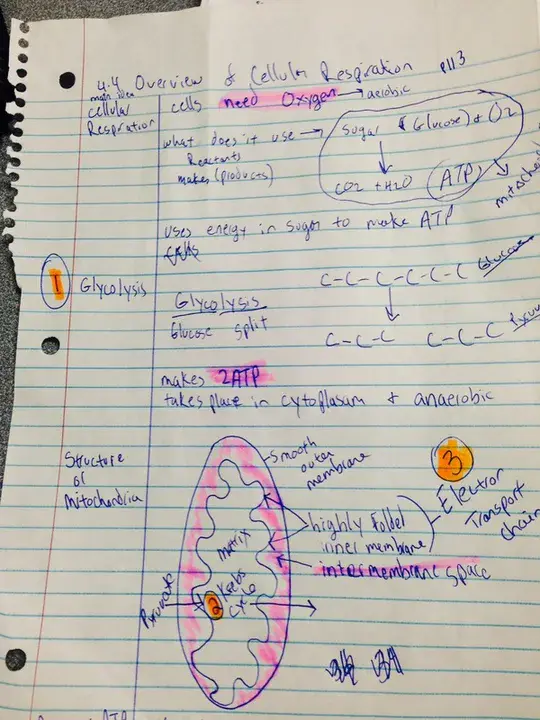 4.4 Overview of Cellular Respiration p113
main idea
cellular
Respiration
cells need Oxygen → aerobic
what does it use →
Reactants
makes (products)
Sugar (Glucose) + O2
CO2 + H2O ATP
uses energy in sugar to make ATP
1 Glycolysis
Glycolysis
Glucose split
C-C-C-C-C-C Glucose
C-C-C C-C-C
makes 2ATP
takes place in cytoplasum + anaerobic
Structure
of
Mitochondria
smooth
outer
membrane
3
Electron
Transport
chain
highly folded
inner membrane
intermembrane space
matrix
Pyruvate
2 Krebs
Cycle